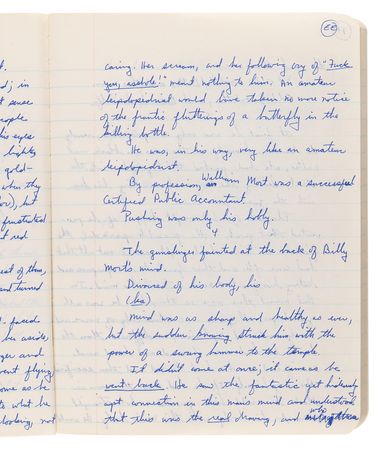 EE
t.
d; in
t sense
eople
his eyes
lights,
gold-
when they
ore), but
frustrated
t red
eat of them,
and turned
faced
he aside,
zer and
vent flying
ome as he
to what he
looking, not
caring. Her scream, and her following cry of "Fuck
you, asshole!" meant nothing to him. An amateur
lepidopterist would have taken no more notice
of the frantic flutterings of a butterfly in the
killing bottle.
He was, in his way, very like an amateur
lepidopterist.
By profession, William Mort was a successful
Certified Public Accountant.
Pushing was only his hobby.
4
The gunslinger fainted at the back of Billy
Mort's mind.
Divorced of his body, his
(ka)
mind was as sharp and healthy as ever,
but the sudden knowing struck him with the
power of a swung hammer to the temple.
It didn't come at once; it came as he
went back. He saw the fantastic yet hideously
apt connection in this man's mind and understood
that this was the real drawing, and who